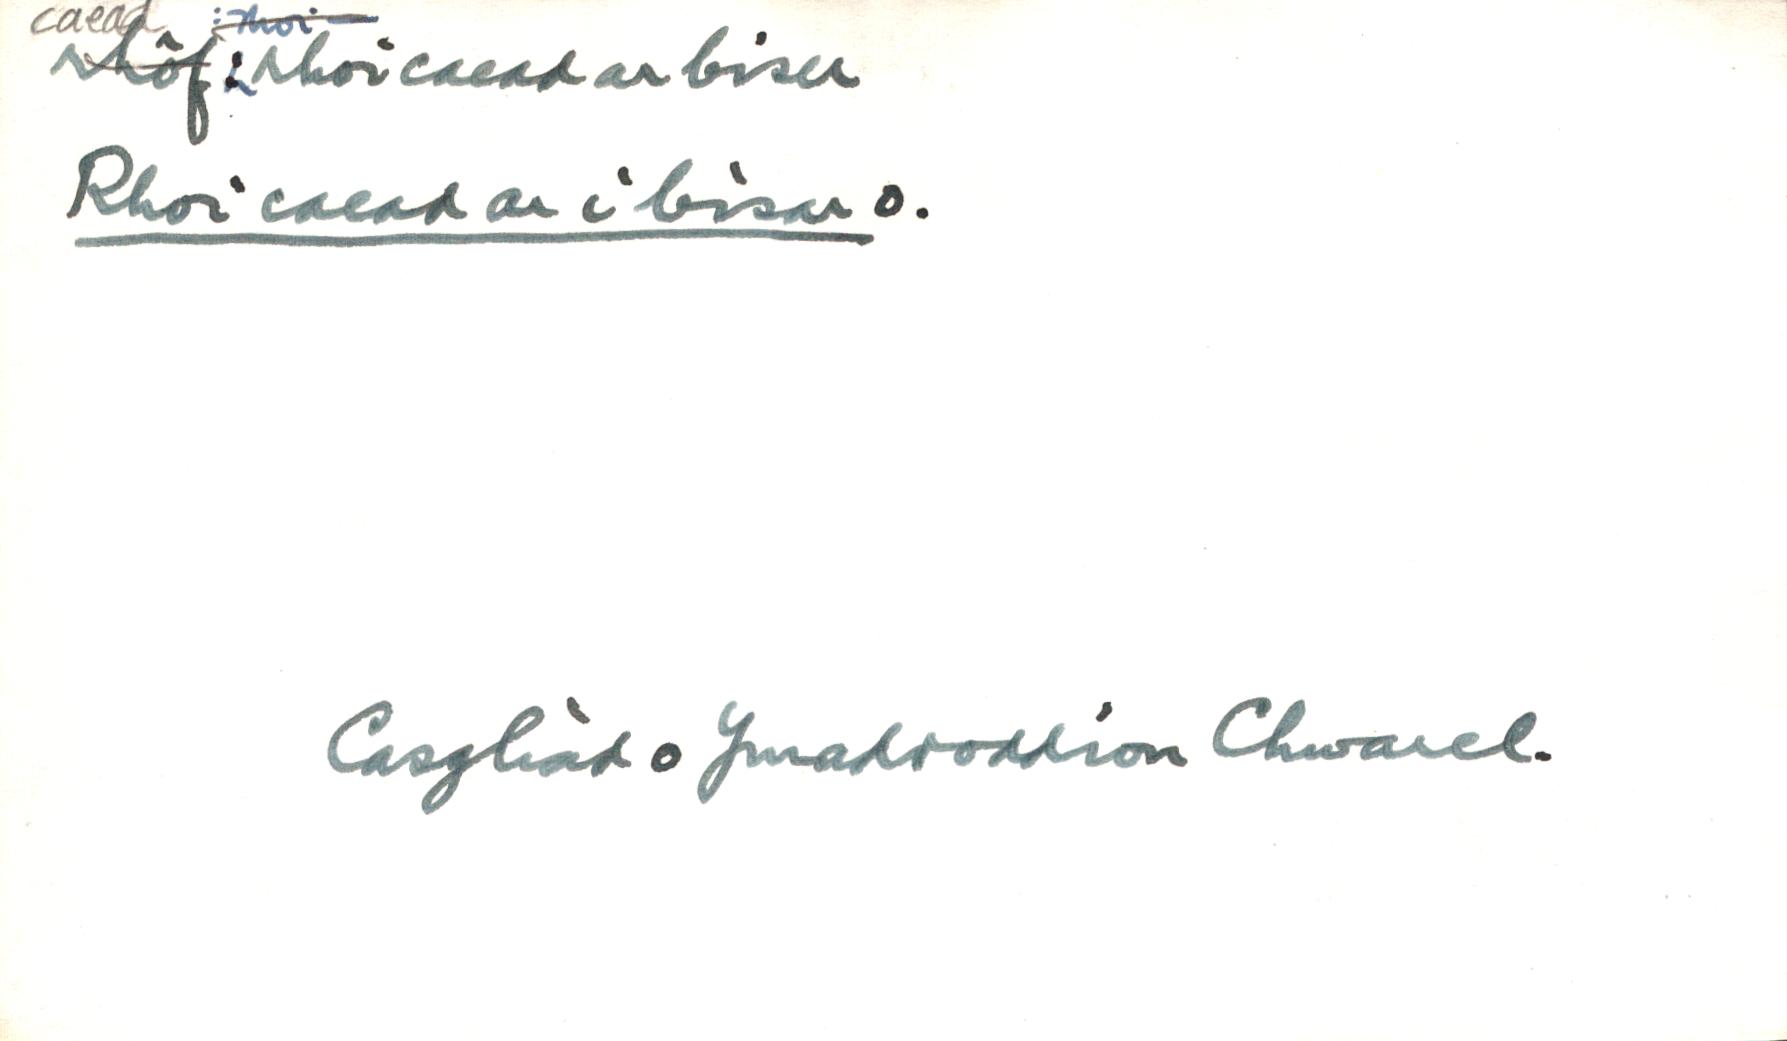 caead : rhoi
rhôf : rhoi caead ar biser
Rhoi caead ar i bisar o.
Casgliad o Ymadroddion Chwarel.